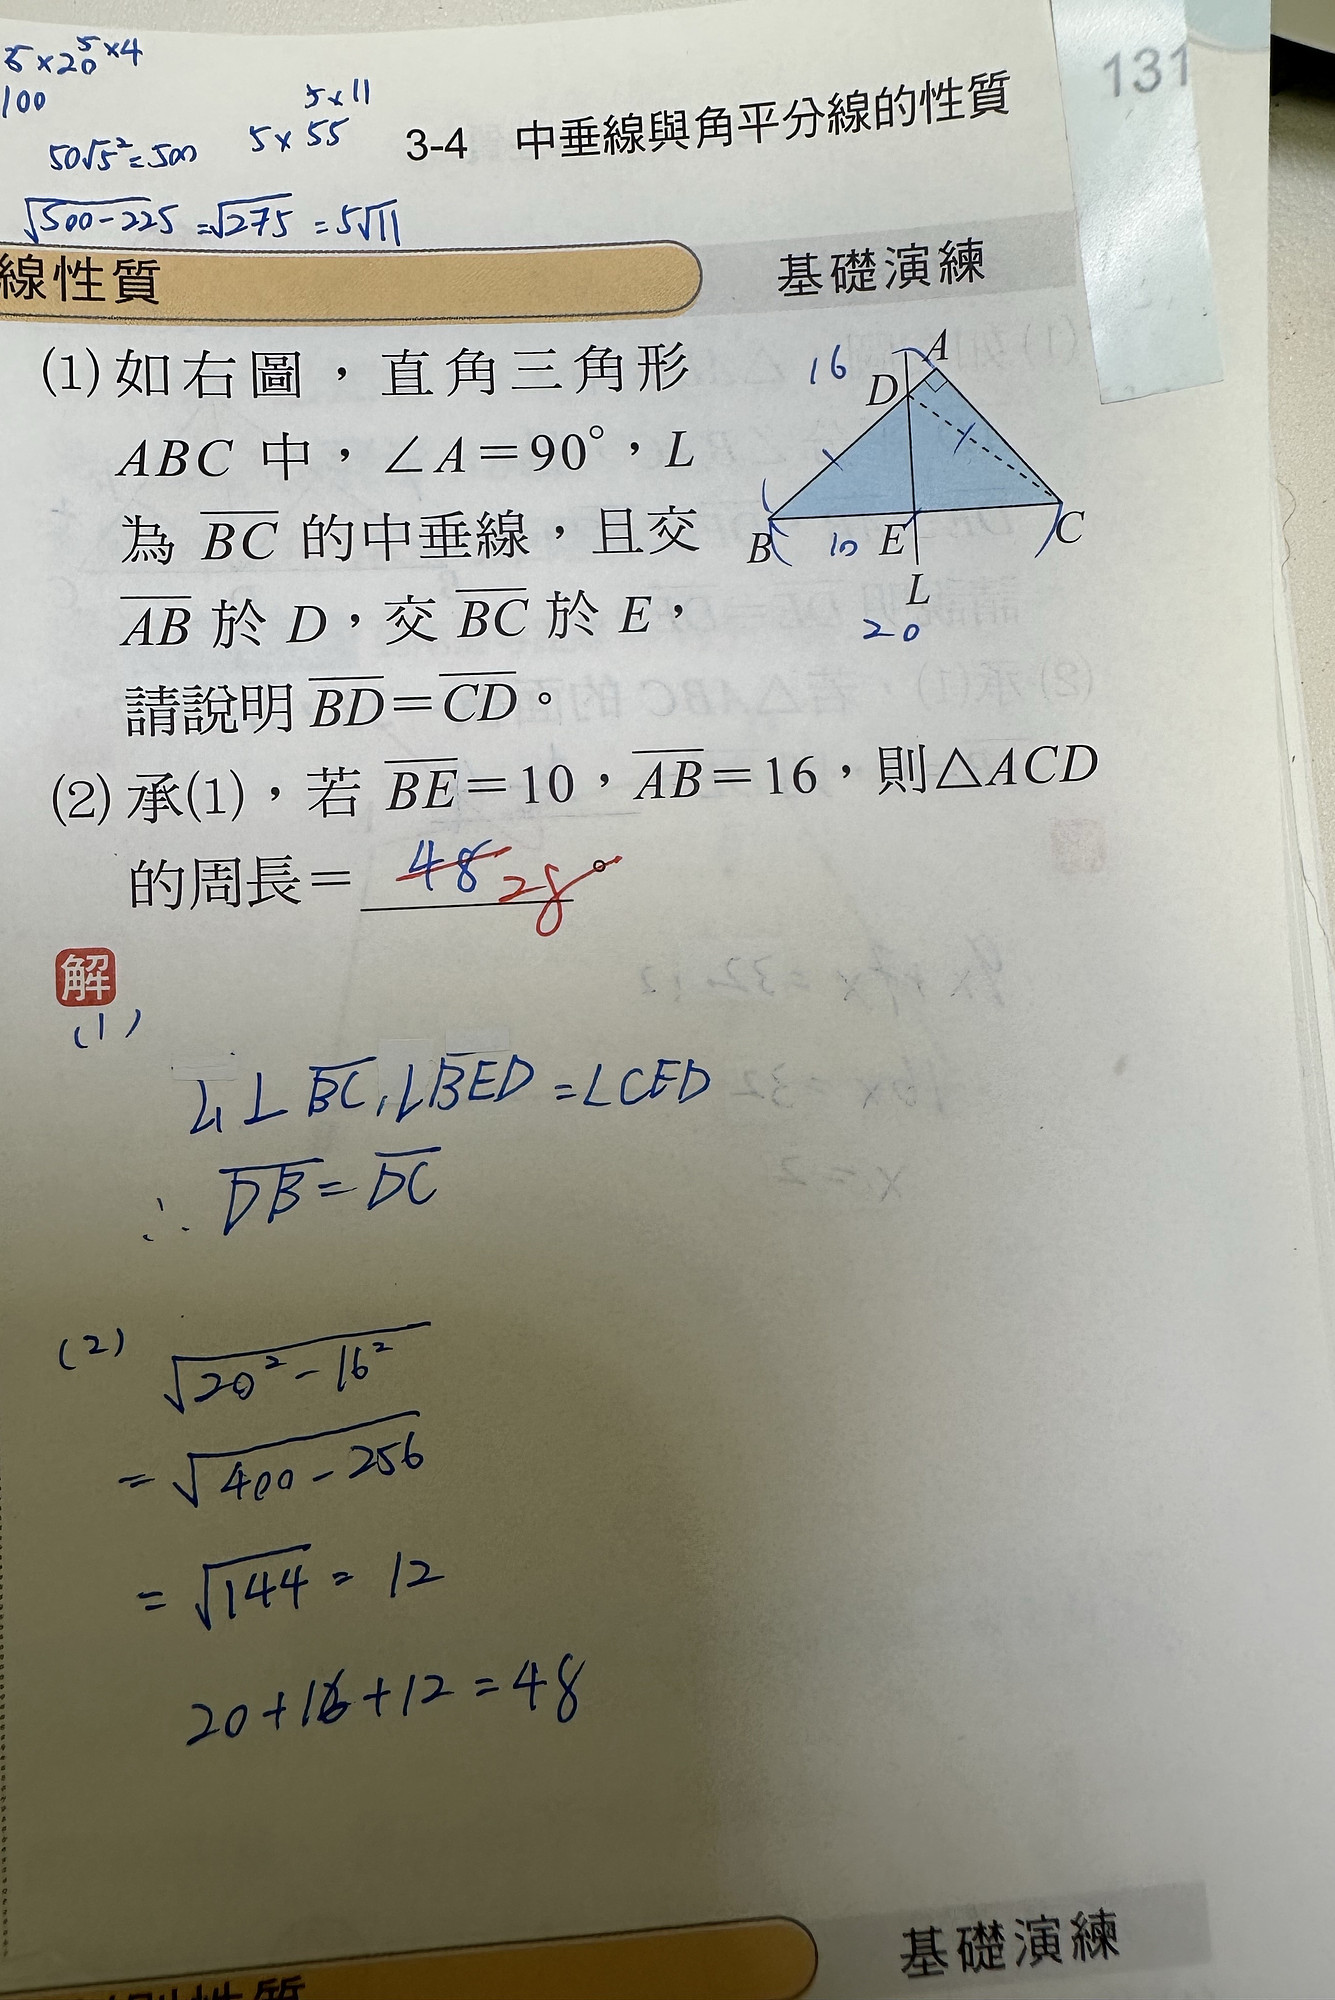 5×20 5×4
100
5×11
50√5²=500
5×55
131
3-4 中垂線與角平分線的性質
√500-225 =√275 =5√11
線性質
基礎演練
(1) 如右圖，直角三角形
ABC 中，∠A＝90°，L
為 BC 的中垂線，且交
AB 於 D，交 BC 於 E，
請說明 BD＝CD。
16
A
D
B
10
E
C
L
20
(2) 承(1)，若 BE＝10，AB＝16，則△ACD
的周長＝ 48 28 。
解
(1)
L⊥BC, ∠BED=∠CED
∴ DB=DC
(2)
√20²-16²
=√400-256
=√144 = 12
20+16+12=48
基礎演練
性質